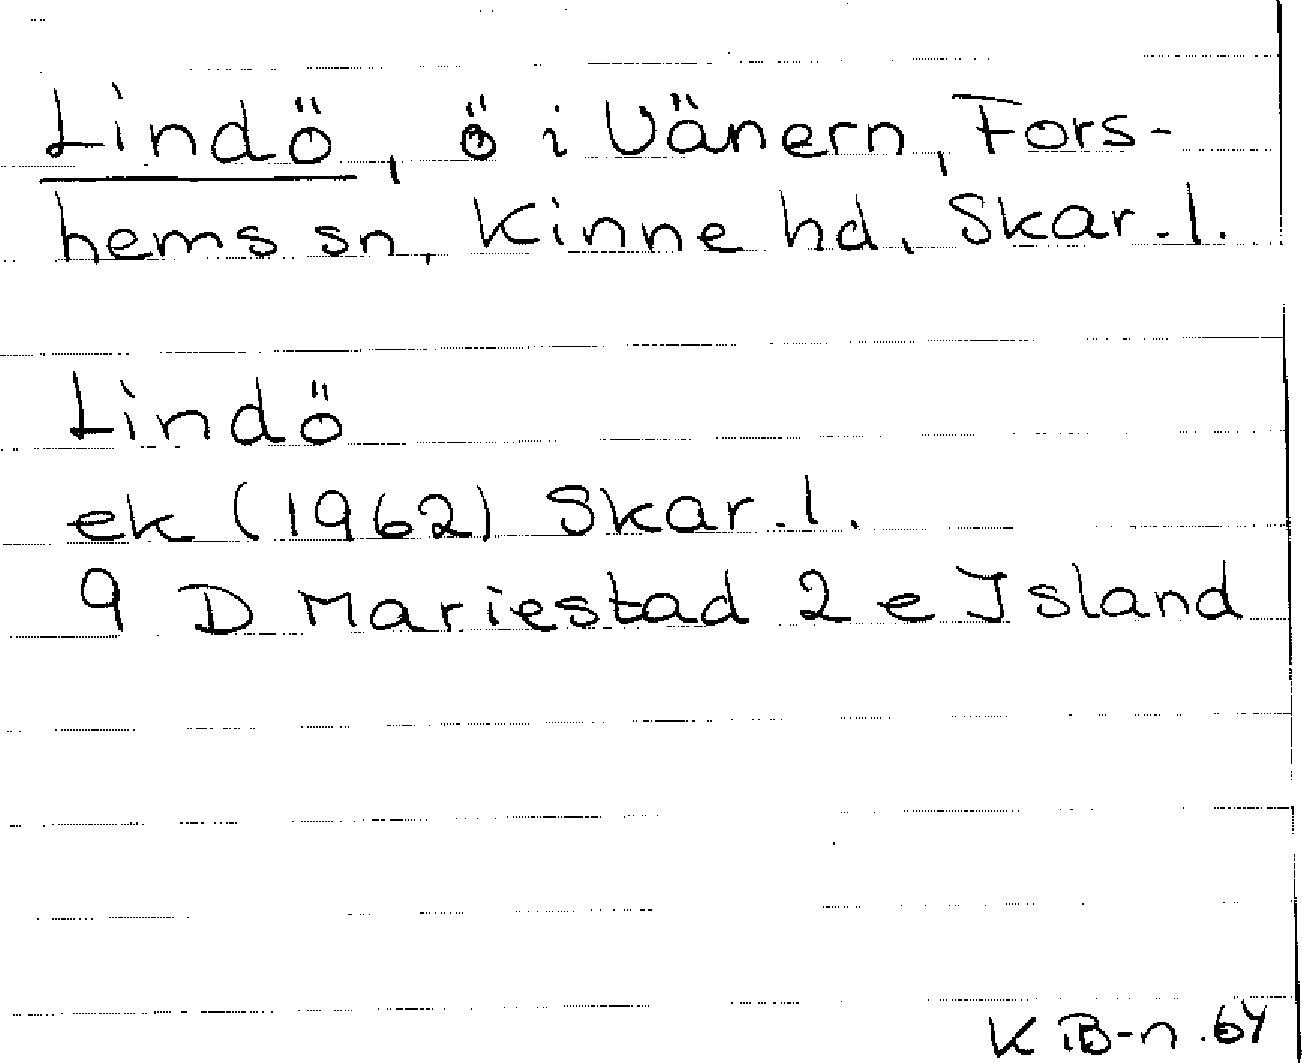 Lindö, ö i Vänern, Fors-
hems sn, Kinne hd, Skar.l.
Lindö
ek (1962) Skar.l.
9 D Mariestad 2 e Island
K iB-n .64